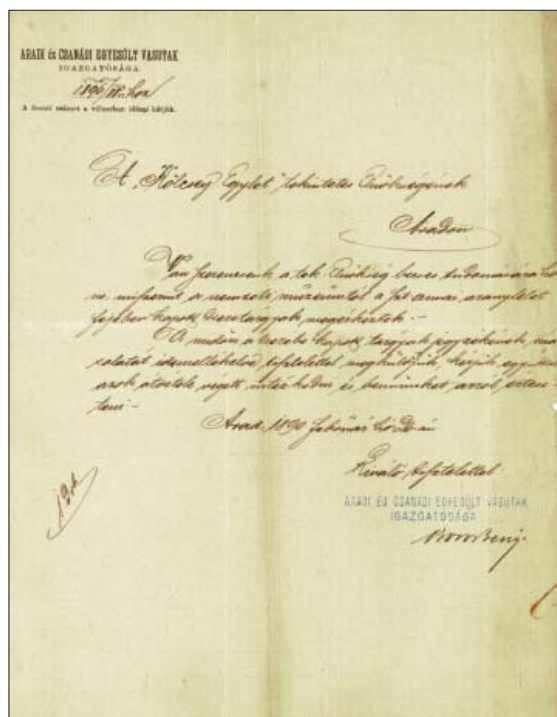 ARADI és CSANÁDI EGYESÜLT VASUTAK
IGAZGATÓSÁGA.
1890
A fenti számot a válaszban idézni kérjük.
A „Kölcsey Egylet" tekintetes Elnökségének
Aradon
Van szerencsénk a tek. Elnökség becses tudomására hoz
ni, miszerint a nemzeti múzeumtól a aranylelet
fejében kapott tárgyak megérkeztek.-
A midőn a cserebe kapott tárgyak jegyzékének má
solatát idemellékelve tisztelettel megküldjük, kérjük
azok átvétele végett intézkedni és bennünket arról értesí
teni.-
Arad, 1890 február hó
Kiváló tisztelettel
ARADI ÉS CSANÁDI EGYESÜLT VASUTAK
IGAZGATÓSÁGA